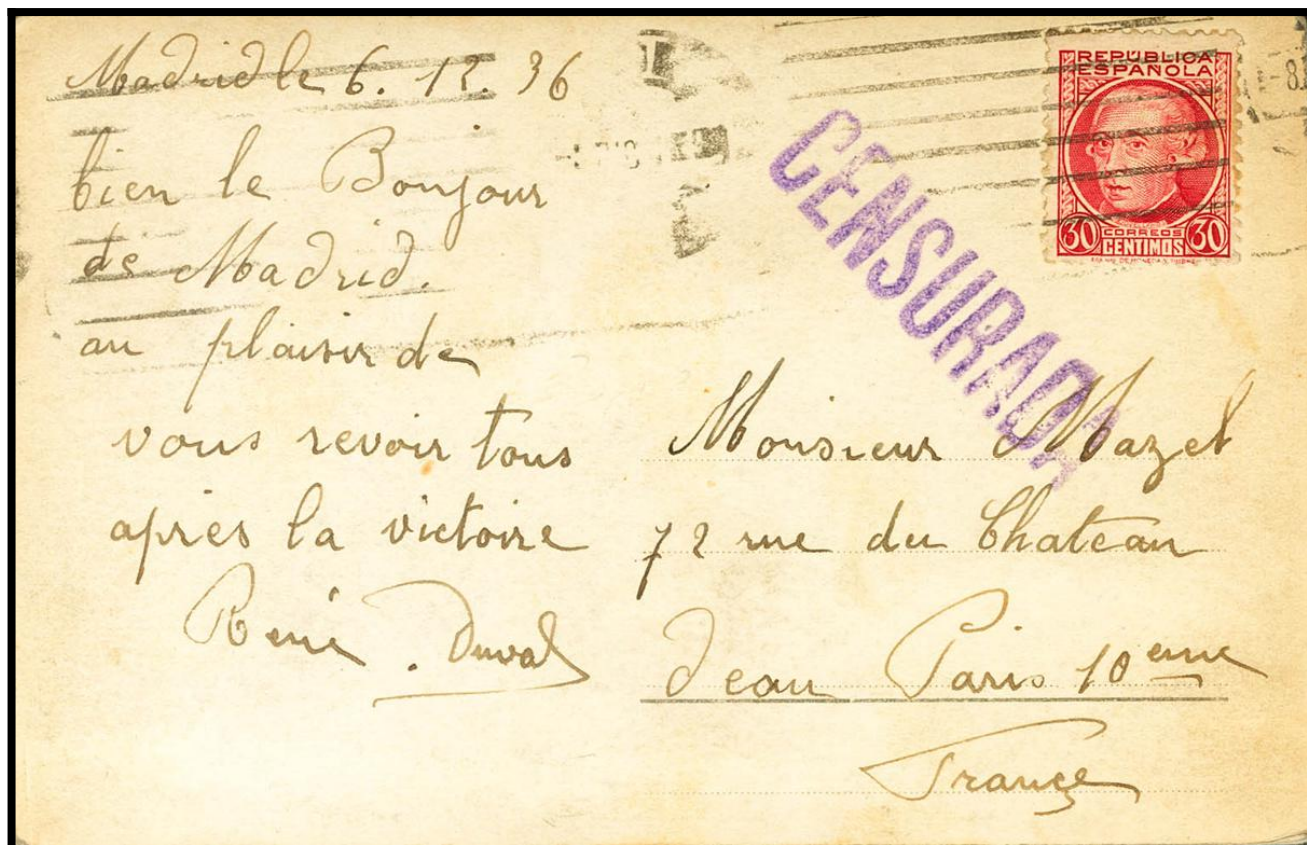 Madrid le 6. 12. 36
bien le Bonjour
de Madrid.
au plaisir de
vous revoir tous
après la victoire
René. Duval
REPÚBLICA
ESPAÑOLA
30 CORREOS 30
CENTIMOS
CENSURADA
Monsieur Mazel
72 rue du Chateau
Deau Paris 10eme
France